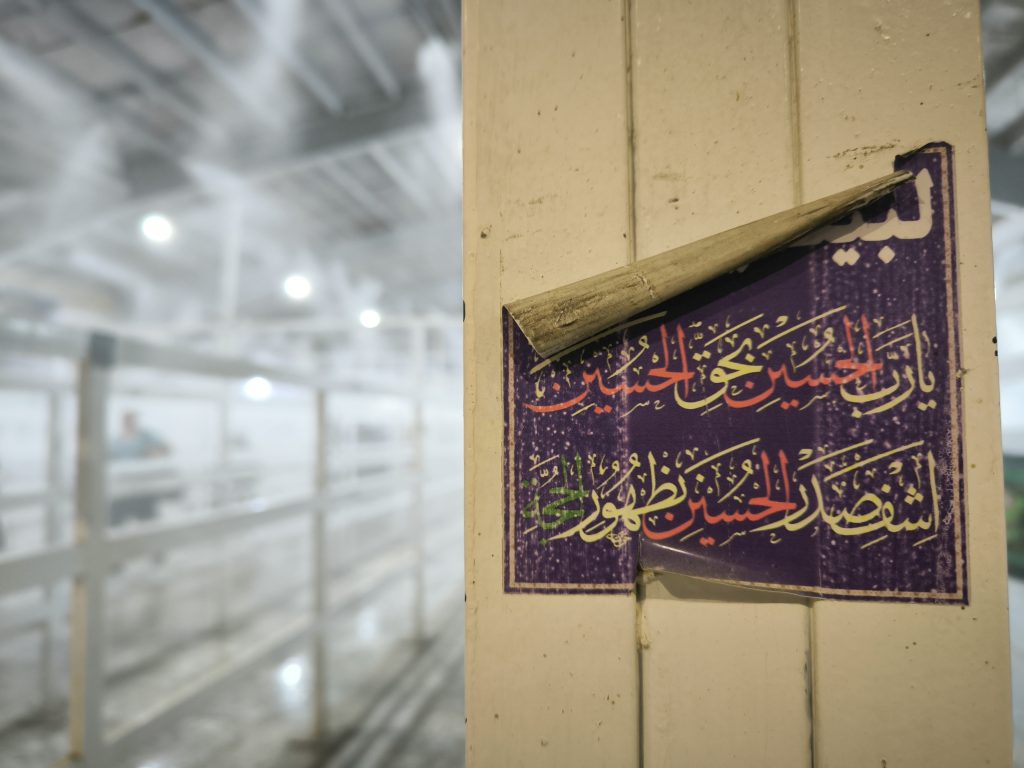 لبيـ
يَا رَبَّ الْحُسَيْنِ بِحَقِّ الْحُسَيْنِ
اِشْفِ صَدْرَ الْحُسَيْنِ بِظُهُورِ الْحُجَّةِ